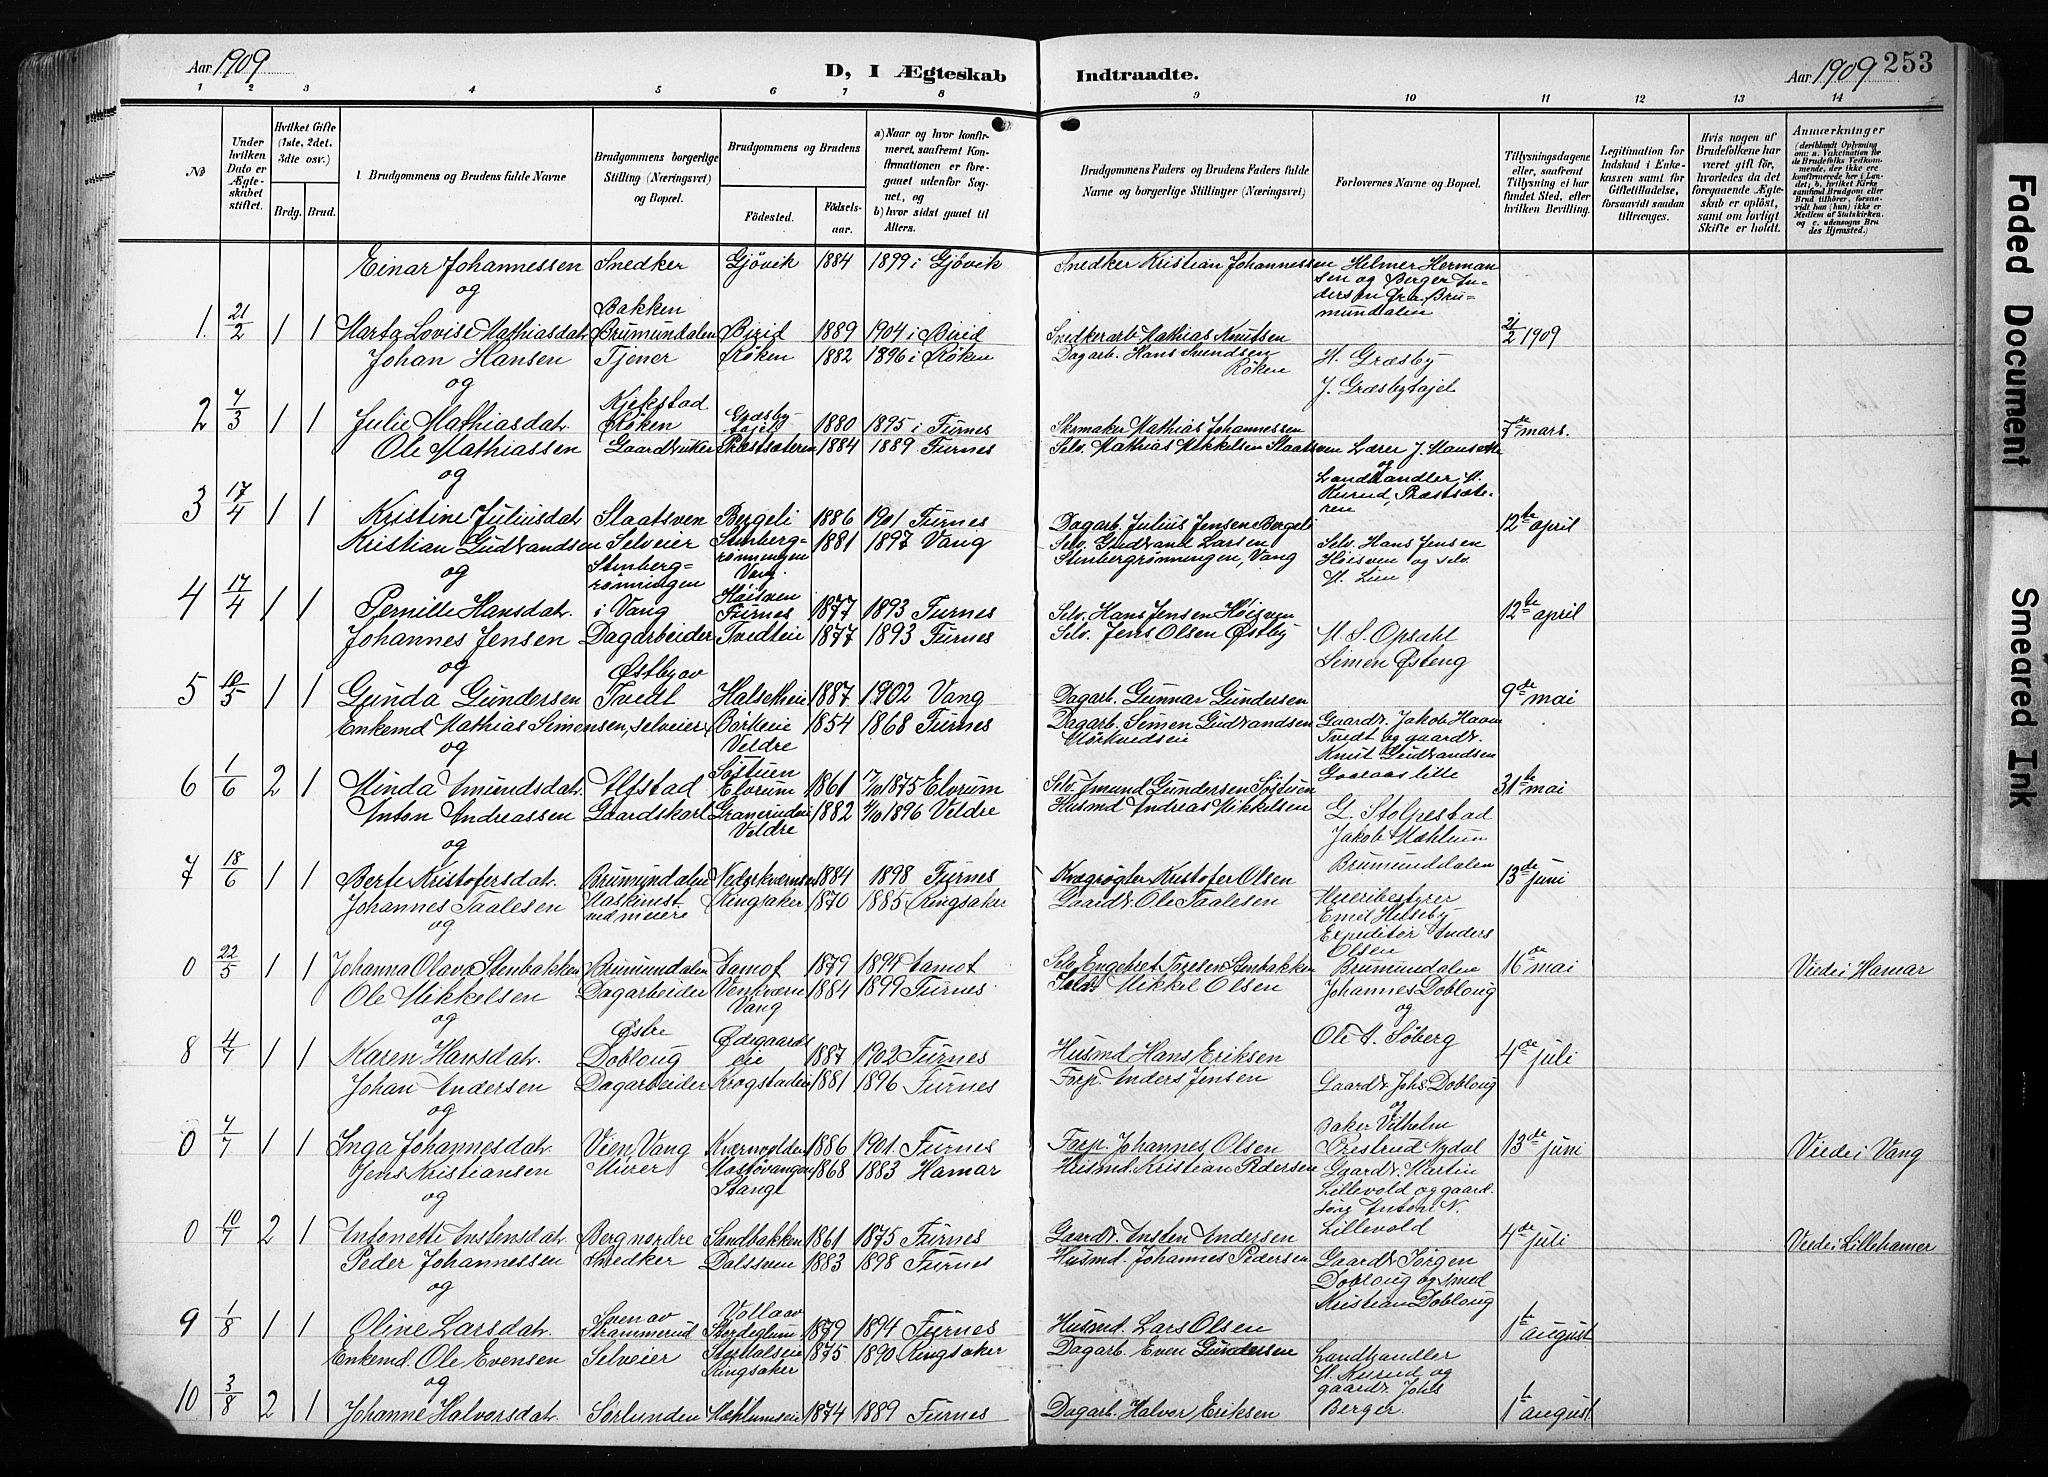 Aar 1909
D, I Ægteskab Indtraadte.
Aar 1909
253
1 2 3 4 5 6 7 8 9 10 11 12 13 14
No
Under hvilken Dato er Ægteskabet stiftet.
Hvilket Gifte (1ste, 2det, 3die osv.)
Brdg. Brud.
1. Brudgommens og Brudens fulde Navne
Brudgommens borgerlige Stilling (Næringsvei) og Bopæl.
Brudgommens og Brudens
Fødested.
Fødselsaar.
a) Naar og hvor konfirmeret, saafremt Konfirmationen er foregaaet udenfor Sognet, og
b) hvor sidst gaaet til Alters.
Brudgommens Faders og Brudens Faders fulde Navne og borgerlige Stillinger (Næringsvei).
Forlovernes Navne og Bopæl.
Tillysningsdagene eller, saafremt Tillysning ei har fundet Sted, efter hvilken Bevilling.
Legitimation for Indskud i Enkekassen samt for Giftetilladelse, forsaavidt saadan tiltrænges.
Hvis nogen af Brudefolkene har været gift før, hvorledes da det foregaaende Ægteskab er opløst, samt om lovligt Skifte er holdt.
Anmærkninger
Einar Johannessen Snedker Gjövik 1884 1899 i Gjövik Snedker Kristian Johannessen Helmer Hermansen og Berger Andersen fra Brumundalen
og
1 21/2 1 1 Marta Lovise Mathiasdatr. Bakken Brumundalen Birid 1889 1904 i Birid Snedkerarb Mathias Knutsen 21/2 1909
Johan Hansen Tjener Röken 1882 1896 i Röken Dagarb. Hans Svendsen Röken H. Græsby
og J. Græsbytajet
2 7/3 1 1 Julie Mathiasdatr. Kjekstad Röken Græsbytajet 1880 1895 i Furnes Skomaker Mathias Johannessen 7de mars.
Ole Mathiassen Gaardbruker Præstsæteren 1884 1889 Furnes Selv. Mathias Mikkelsen Staatsven Lærer J. Hansæth
og og Landhandler M. Kurud, Præstsæteren
3 17/4 1 1 Kristine Juliusdatr. Staatsven Bergeli 1886 1901 Furnes Dagarb. Julius Jensen Bergeli 12te april
Kristian Gudbrandsen Selveier Stenbergrönningen Vang 1881 1897 Vang Selv. Gudbrand Larsen Stenbergrönningen, Vang Selv. Hans Jensen Höisven og selv. M. Lien
og
4 17/4 1 1 Pernille Hansdatr. Stenbergrönningen i Vang Höisven Furnes 1877 1893 Furnes Selv. Hans Jensen Höisven 12te april
Johannes Jensen Dagarbeider Tvedteie 1877 1893 Furnes Selv. Jens Olsen Østby M. S. Opsahl
og Simen Østeng
5 10/5 1 1 Gunda Gundersen Østby av Tvedt Halsetheie 1887 1902 Vang Dagarb. Gunnar Gundersen 9de mai
Enkemd Mathias Simensen, selveier Börkeeie Veldre 1854 1868 Furnes Dagarb. Simen Gudbrandsen Mörkvedseie Gaardb. Jakob Haavn Tvedt og gaardb. Knut Gudbrandsen Gaaraas lille
og
6 1/6 2 1 Minda Amundsdatr. Alfstad Söstuen Elvrum 1861 17/10 1875 Elvrum Selv. Amund Gundersen Söstuen 31te mai
Anton Andreassen Gaardskarl Graneruden Veldre 1882 4/10 1896 Veldre Husmd Andreas Mikkelsen G. Stolpestad
og Jakob Mæhlum Brumunddalen
7 18/6 1 1 Berte Kristofersdatr. Brumundalen Nederkvernsv. 1884 1898 Furnes Kvægrögter Kristofer Olsen 13de juni
Johannes Taalesen Maskinest ved meieri Ringsaker 1870 1885 Ringsaker Gaardb. Ole Taalesen Meieribestyrer Emil Hilseby
og Expeditör Anders Olsen
0 22/5 1 1 Johanna Olava Stenbakken Brumundalen Aamot 1879 1894 Aamot Selv. Engebret Toresen Stenbakken Brumundalen 16de mai Viede i Hamar
Ole Mikkelsen Dagarbeider Venkværn Vang 1884 1899 Furnes. Mikkel Olsen Johannes Dobloug
og og
8 4/7 1 1 Karen Hansdatr. Østre Dobloug Ødegaardseie 1887 1902 Furnes Husmd Hans Eriksen Ole A. Söberg 4de juli
Johan Andersen Dagarbeider Krogstadeie 1881 1896 Furnes Forp. Anders Jensen Gaardb. Johs. Dobloug
og og
0 4/7 1 1 Inga Johannesdatr. Vien, Vang Kværnvolden 1886 1901 Furnes Forp. Johannes Olsen Baker Vilhelm Prestrud Nydal 13de juni Viede i Vang
Jens Kristiansen Murer Mastövangen Stange 1868 1883 Hamar Husmd. Kristian Pedersen Gaardb. Martin Lillevold og gaard.
og
0 10/7 2 1 Antonette Anstensdatr. Berg nordre Sandbakken 1861 1875 Furnes Gaardb. Ansten Andersen Lillevold 4de juli Viede i Lillehamer
Peder Johannessen Snedker Dalssven 1883 1898 Furnes Husmd. Johannes Pedersen Gaardb Jörgen Dobloug og smed Kristian Dobloug
og
9 1/8 1 1 Oline Larsdatr. Sven av Strammerud Volla av Stordeglum 1879 1894 Furnes Husmd. Lars Olsen 1te august
Enkemd. Ole Evensen Selveier Ringsaker 1875 1890 Ringsaker Dagarb. Even Gundersen Landhandler M. Kurud og gaardb. Johs Berger.
og
10 3/8 2 1 Johanne Halvorsdatr. Sorlunden Mæhlumseie 1874 1889 Furnes Dagarb. Halvor Eriksen 1te august
Faded Document
Smeared Ink